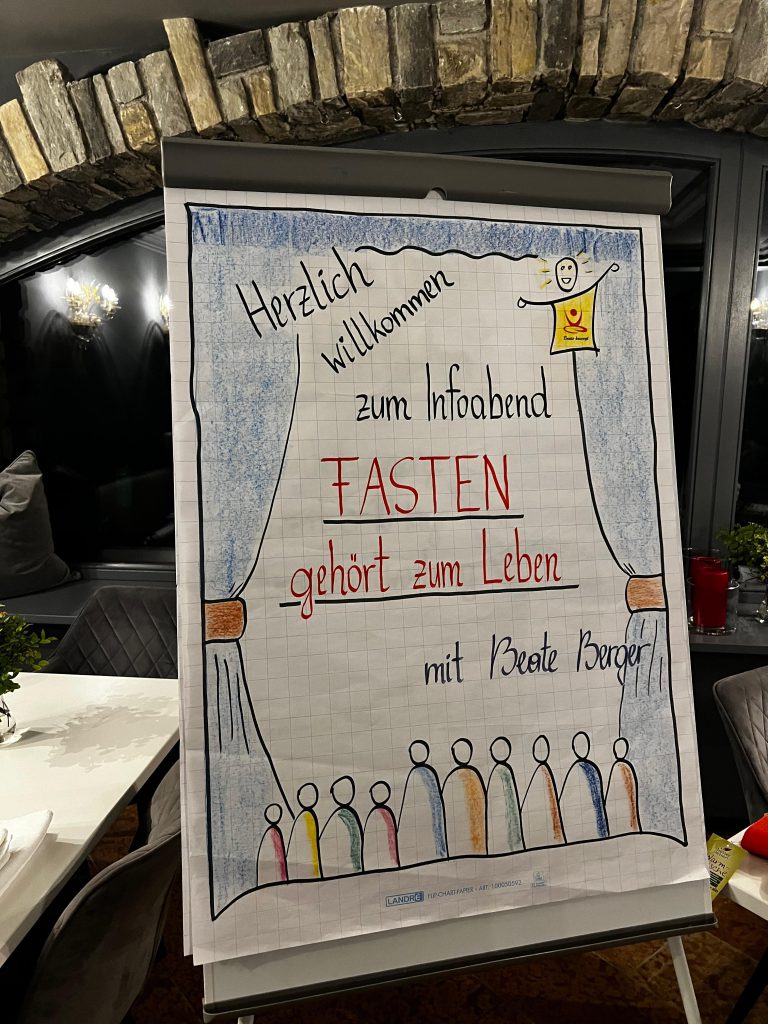 Herzlich
willkommen
zum Infoabend
FASTEN
gehört zum Leben
mit Beate Berger
LANDRÉ FLIP-CHART-PAPIER • ART. 100050592